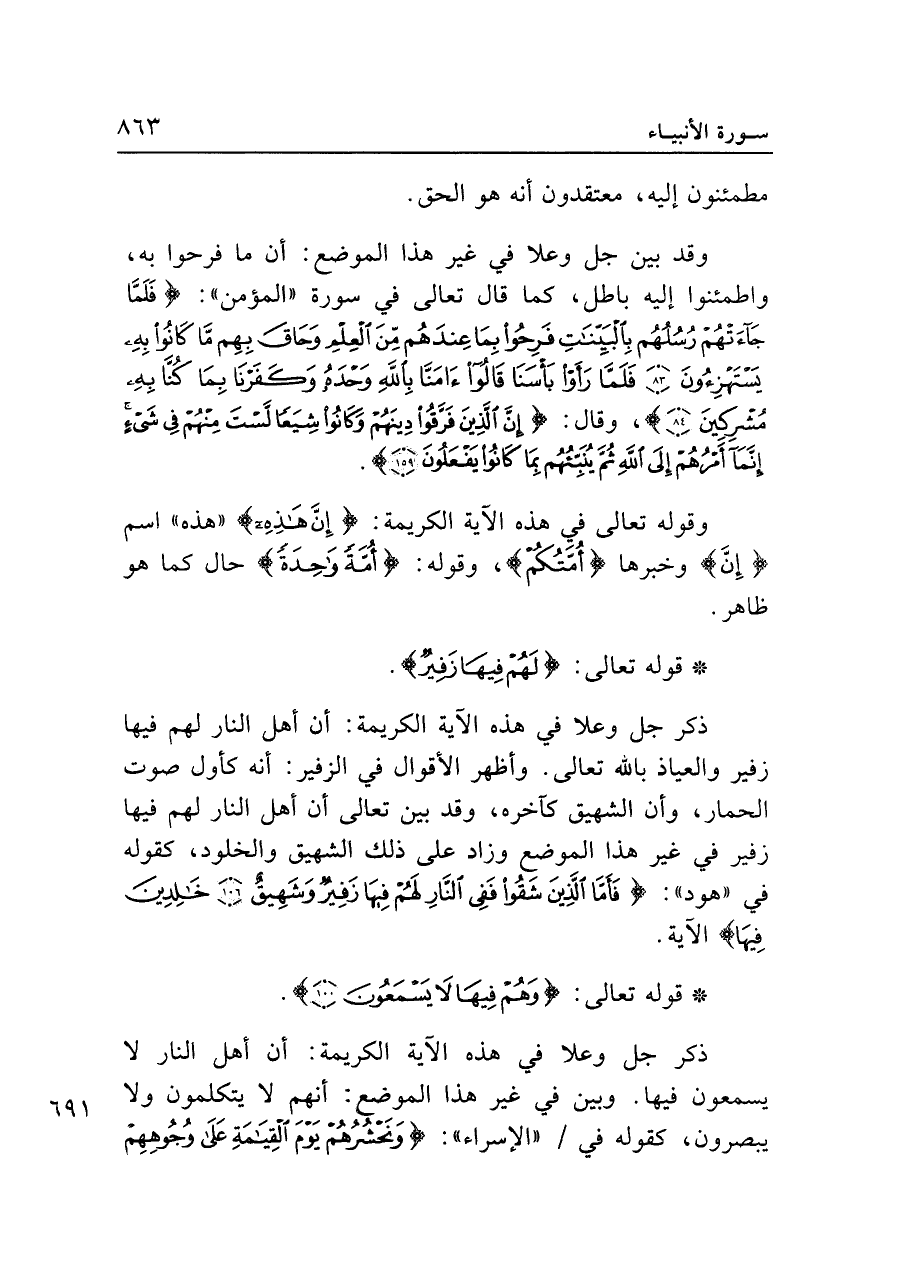 سورة الأنبياء ٨٦٣
مطمئنون إليه، معتقدون أنه هو الحق.
وقد بين جل وعلا في غير هذا الموضع: أن ما فرحوا به،
واطمئنوا إليه باطل، كما قال تعالى في سورة «المؤمن»: ﴿ فَلَمَّا
جَآءَتْهُمْ رُسُلُهُم بِالْبَيِّنَٰتِ فَرِحُواْ بِمَا عِندَهُم مِّنَ الْعِلْمِ وَحَاقَ بِهِم مَّا كَانُواْ بِهِۦ
يَسْتَهْزِءُونَ ۝٨٣ فَلَمَّا رَأَوْاْ بَأْسَنَا قَالُوٓاْ ءَامَنَّا بِاللَّهِ وَحْدَهُۥ وَكَفَرْنَا بِمَا كُنَّا بِهِۦ
مُشْرِكِينَ ۝٨٤ ﴾، وقال: ﴿ إِنَّ الَّذِينَ فَرَّقُواْ دِينَهُمْ وَكَانُواْ شِيَعًا لَّسْتَ مِنْهُمْ فِى شَىْءٍ ۚ
إِنَّمَآ أَمْرُهُمْ إِلَى اللَّهِ ثُمَّ يُنَبِّئُهُم بِمَا كَانُواْ يَفْعَلُونَ ۝١٥٩ ﴾.
وقوله تعالى في هذه الآية الكريمة: ﴿ إِنَّ هَٰذِهِۦٓ ﴾ «هذه» اسم
﴿ إِنَّ ﴾ وخبرها ﴿ أُمَّتُكُمْ ﴾، وقوله: ﴿ أُمَّةً وَٰحِدَةً ﴾ حال كما هو
ظاهر.
* قوله تعالى: ﴿ لَهُمْ فِيهَا زَفِيرٌ ﴾.
ذكر جل وعلا في هذه الآية الكريمة: أن أهل النار لهم فيها
زفير والعياذ بالله تعالى. وأظهر الأقوال في الزفير: أنه كأول صوت
الحمار، وأن الشهيق كآخره، وقد بين تعالى أن أهل النار لهم فيها
زفير في غير هذا الموضع وزاد على ذلك الشهيق والخلود، كقوله
في «هود»: ﴿ فَأَمَّا الَّذِينَ شَقُواْ فَفِى النَّارِ لَهُمْ فِيهَا زَفِيرٌ وَشَهِيقٌ ۝١٠٦ خَٰلِدِينَ
فِيهَا ﴾ الآية.
* قوله تعالى: ﴿ وَهُمْ فِيهَا لَا يَسْمَعُونَ ۝١٠٠ ﴾.
ذكر جل وعلا في هذه الآية الكريمة: أن أهل النار لا
يسمعون فيها. وبين في غير هذا الموضع: أنهم لا يتكلمون ولا
٦٩١
يبصرون، كقوله في / «الإسراء»: ﴿ وَنَحْشُرُهُمْ يَوْمَ الْقِيَٰمَةِ عَلَىٰ وُجُوهِهِمْ